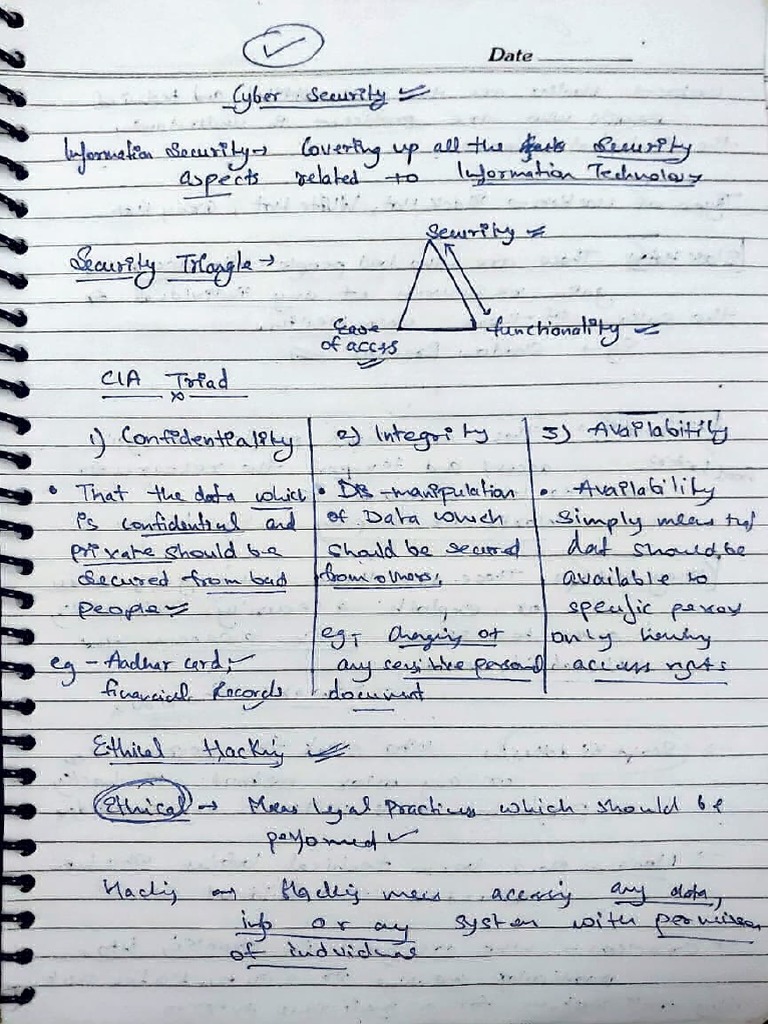 Date
Cyber Security
Information Security → Covering up all the Security
aspects related to Information Technology
Security Triangle →
Security
Ease
of access
functionality
CIA Triad
1) Confidentiality
• That the data which
is confidential and
private should be
secured from bad
people
eg - Aadhar card,
financial Records
2) Integrity
• Dis-manipulation
of Data which
should be secured
from others,
eg, Changing of
any sensitive personal
document
3) Availability
• Availability
simply means that
data should be
available to
specific person
only having
access rights
Ethical Hacking
Ethical → Means legal Practices which should be
performed
Hacking → Hacking means accessing any data,
info or any system with permission
of individual